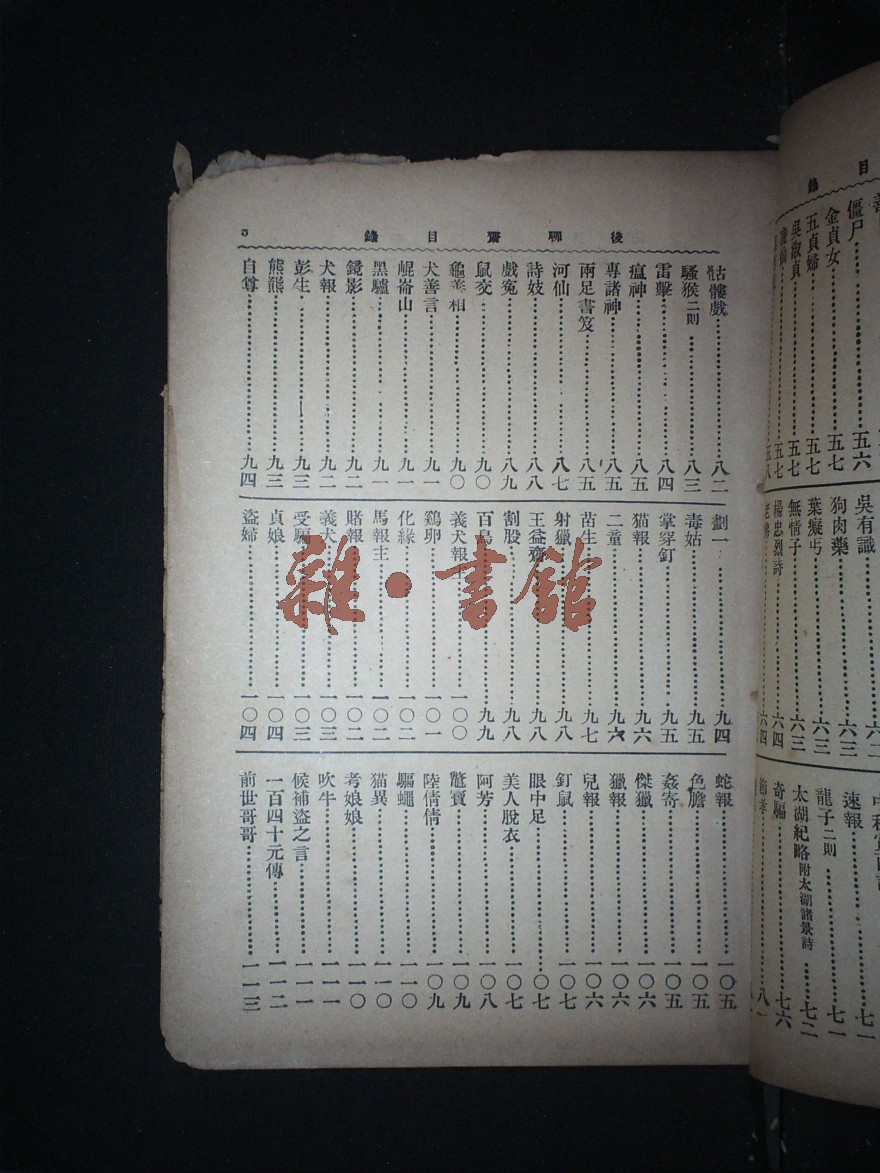 目錄
僵尸…五六
金貞女…五七
五貞婦…五七
吳淑貞…五七
吳有識
狗肉藥…六三
葉癡丐…六三
無情子…六三
楊忠烈詩…六四
速報…七一
龍子二則…七一
太湖紀略附太湖諸景詩…七二
奇騙…七六
後聊齋目錄
5
骷髏戲…八二
騷猴二則…八三
雷擊…八四
瘟神…八五
專諸神…八五
兩足書笈…八五
河仙…八七
詩妓…八八
戲寃…八九
鼠交…九〇
龜善相…九〇
犬善言…九一
崐崙山…九一
黑驢…九一
鏡影…九二
犬報…九二
彭生…九三
熊熊…九三
自尊…九四
劃一…九四
毒姑…九五
掌穿釘…九五
猫報…九六
二童…九六
苗生…九七
射獵…九八
王益齋…九八
割股…九八
百鳥…九九
義犬報主…一〇〇
鷄卵…一〇一
化緣…一〇二
馬報主…一〇二
賭報…一〇二
義犬…一〇三
受騙…一〇三
貞娘…一〇四
盜婦…一〇四
蛇報…一〇五
色膽…一〇五
姦寄…一〇五
傑獵…一〇六
獵報…一〇六
兒報…一〇六
釘鼠…一〇七
眼中足…一〇七
美人脫衣…一〇七
阿芳…一〇八
鼈寶…一〇九
陸倩倩…一〇九
驅蠅…一一〇
猫異…一一〇
考娘娘…一一〇
吹牛…一一一
候補盜之言…一一一
一百四十元傳…一一二
前世哥哥…一一三
雜·書館